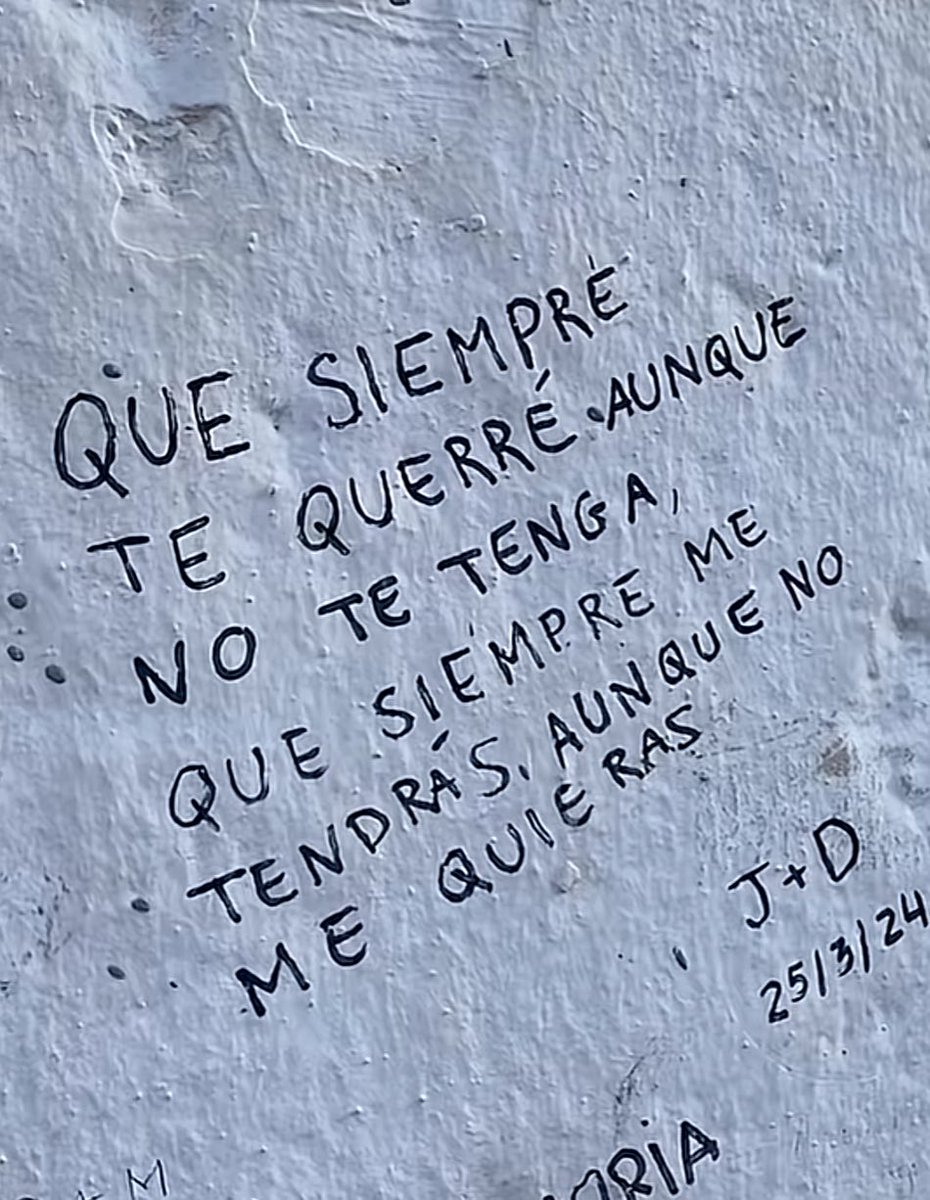 QUE SIEMPRE
TE QUERRÉ AUNQUE
NO TE TENGA,
QUE SIEMPRE ME
TENDRÁS, AUNQUE NO
ME QUIERAS
J+D
25/3/24